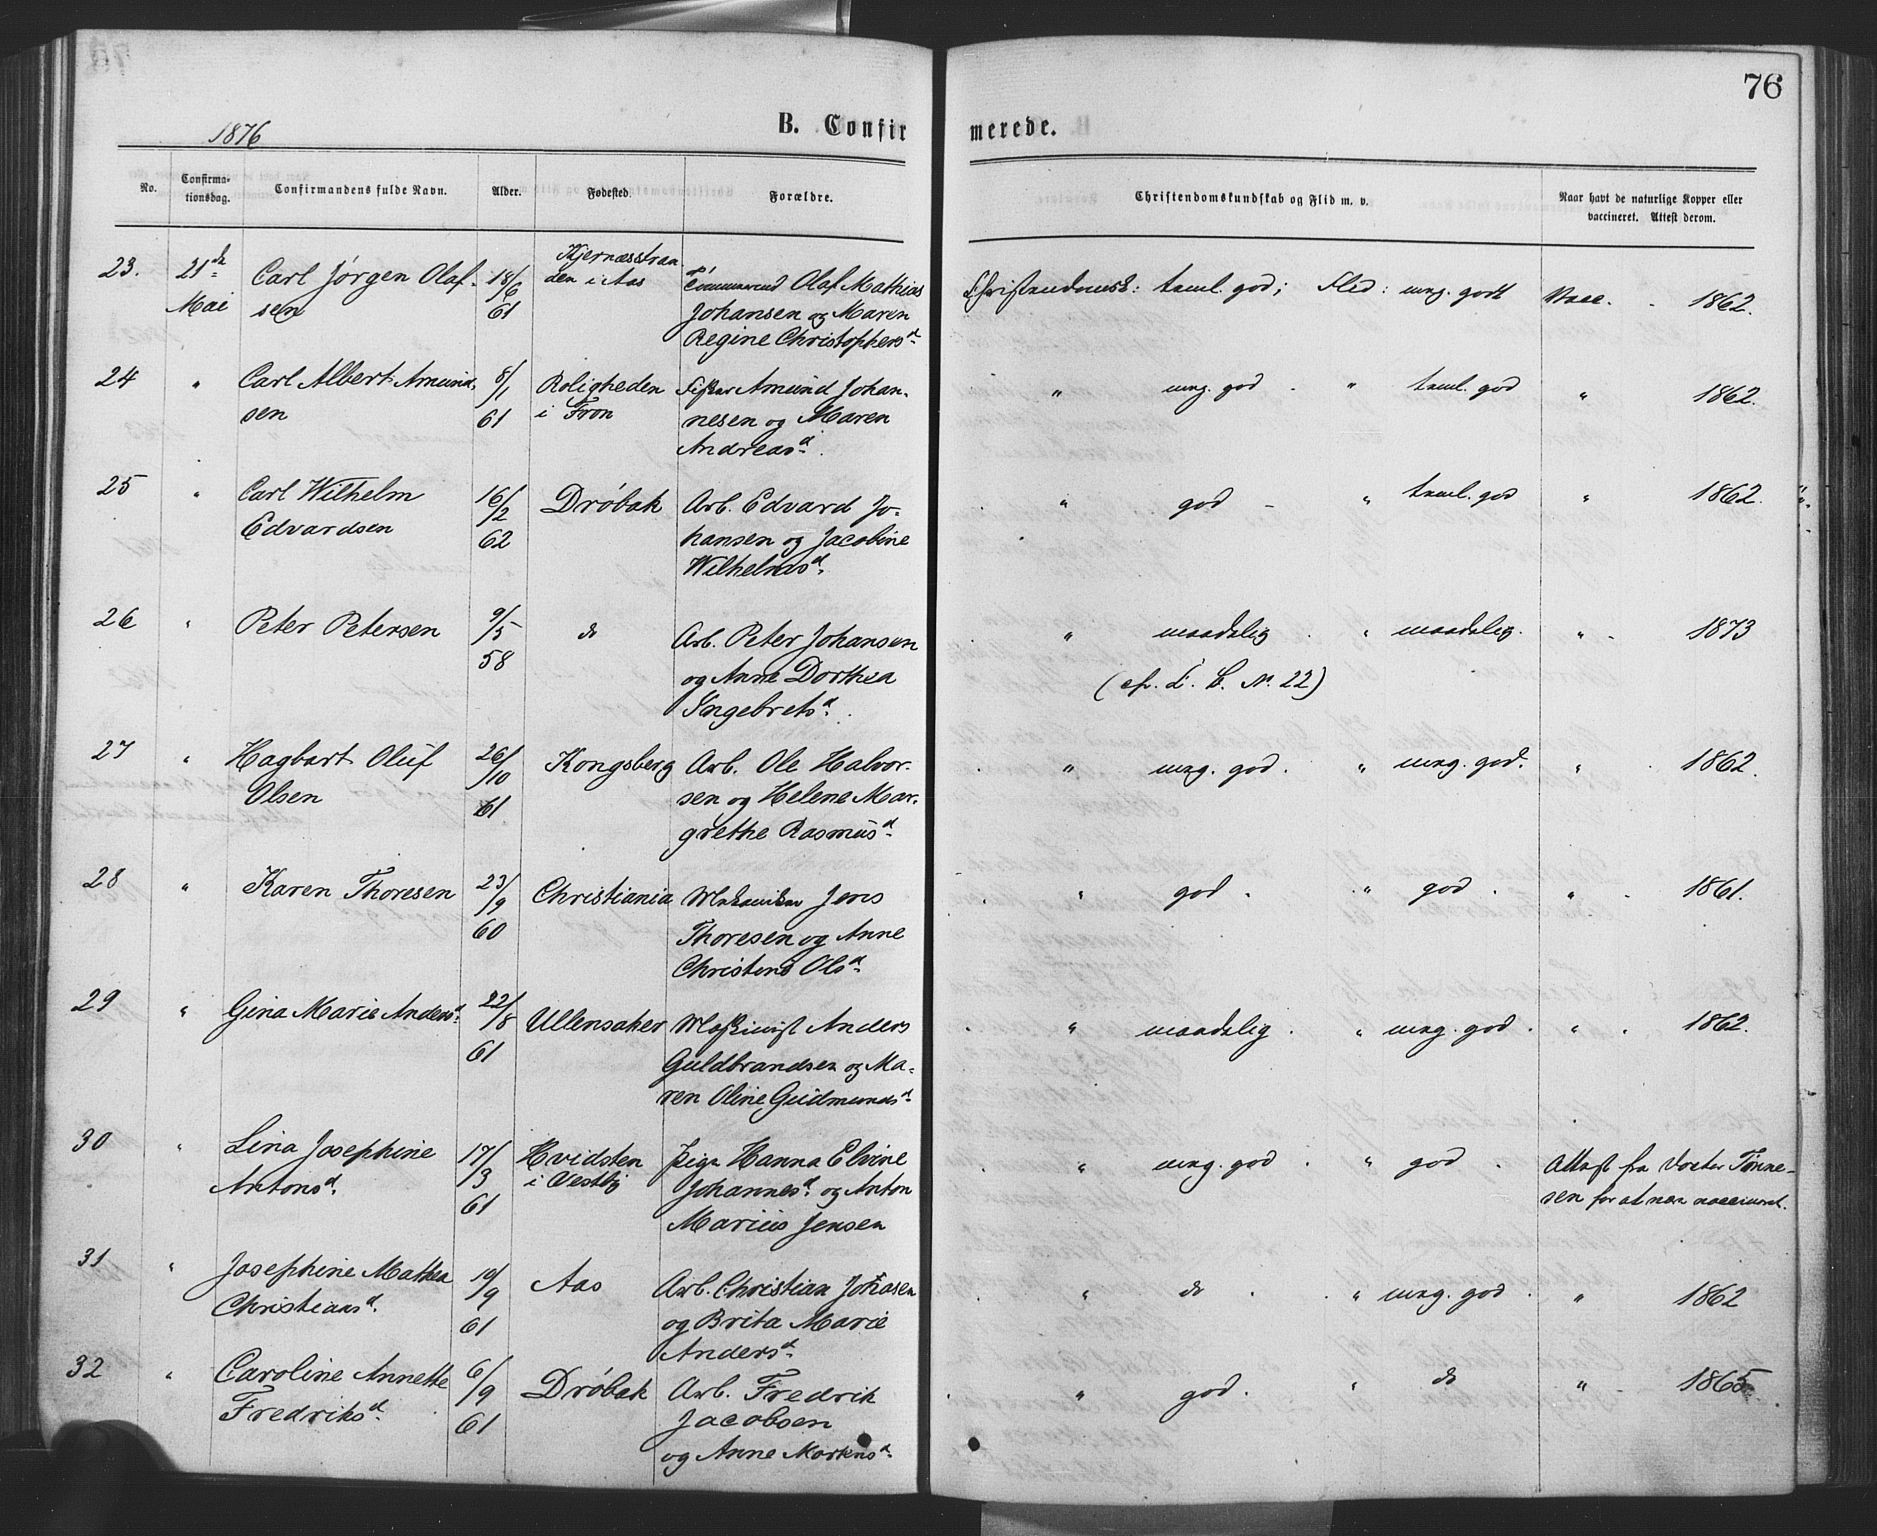 76
1876
B. Confir merede.
No. Confirma-tionsdag. Confirmandens fulde Navn. Alder. Fødested. Forældre. Christendomskundskab og Flid m. v. Naar havt de naturlige Kopper eller vaccineret. Attest derom.
23. 21de Carl Jørgen Olaf- 18/6 Kjernæsstran
den i Aas Tømmermd Olaf Mathias Christendomsk: taml. god; Flid: meg. godt Vacc. 1862.
Mai sen 61 Johansen og Maren
Regine Christophersd.
24 " Carl Albert Amund- 8/1 Roligheden Fisker Amund Johan- " meg. god " taml. god " 1862.
sen 61 i Fron nesen og Maren
Andreasd.
25 " Carl Wilhelm 16/2 Drøbak Arb. Edvard Jo- " god " taml. god " 1862.
Edvardsen 62 hansen og Jacobine
Wilhelmsd.
26 " Peter Petersen 9/5 do Arb. Peter Johansen " maadelig " maadelig. " 1873
58 og Anne Dorthea (cfr. L. C. No. 22)
Ingebretsd.
27 " Hagbart Oluf 26/10 Kongsberg Arb. Ole Halvor- " meg. god. " meg. god. " 1862.
Olsen 61 sen og Helene Mar-
grethe Rasmusd.
28 " Karen Thoresen 23/9 Christiania Mekaniker Jens " god " god " 1861.
60 Thoresen og Anne
Christens Olsd.
29 " Gina Marie Andersd. 22/8 Ullensaker Maskinist Anders " maadelig " meg. god " 1862.
61 Guldbrandsen og Ma-
ren Oline Gudmundsd.
30 " Lina Josephine 17/3 Hvidsten Pige Hanna Elvine " meg. god " god Attest fra Doctor Tønne-
Antonsd. 61 i Vestby Johannesd. og Anton sen for at være vaccineret.
Marius Jensen
31 " Josephine Mathea 10/9 Aas Arb. Christian Johasen " do " meg. god " 1862
Christiansd. 61 og Brita Marie
Andersd.
32 " Caroline Annette 6/9 Drøbak Arb. Fredrik " god. " do " 1865.
Fredriksd. 61 Jacobsen
og Anne Mortensd.